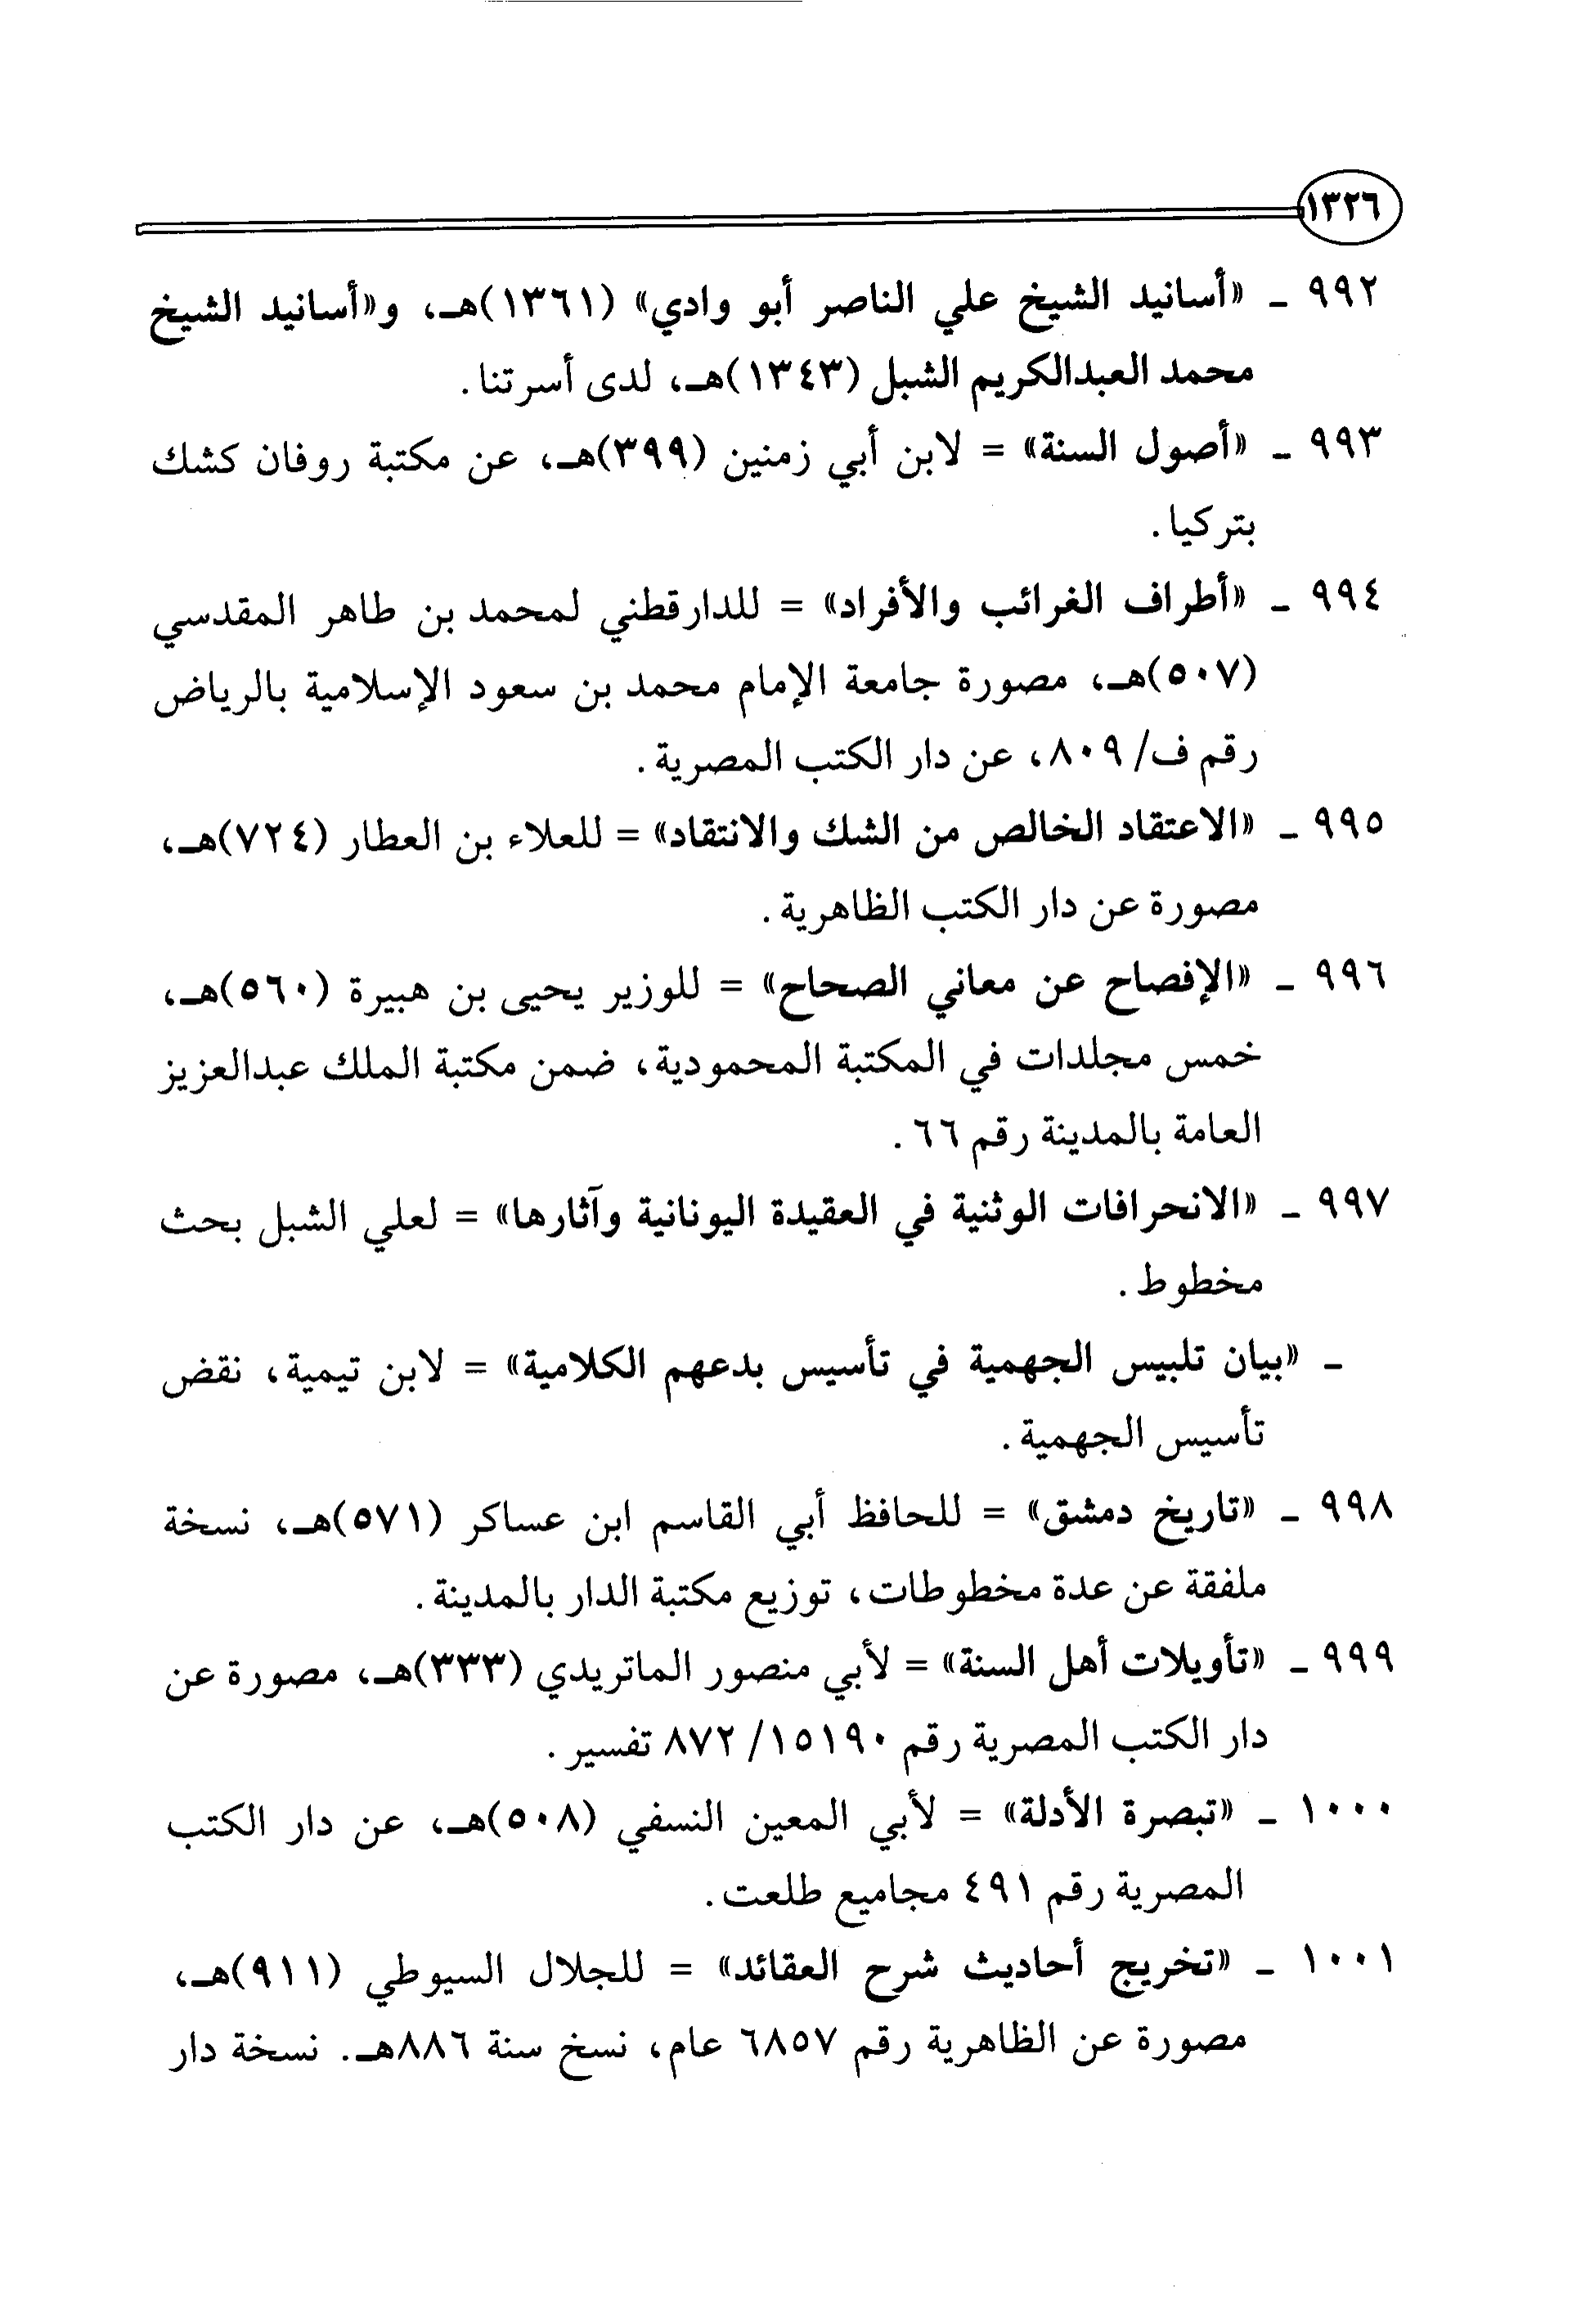 ١٣٢٦
٩٩٢ ـ «أسانيد الشيخ علي الناصر أبو وادي» (١٣٦١)هـ، و«أسانيد الشيخ
محمد العبدالكريم الشبل (١٣٤٣)هـ، لدى أسرتنا.
٩٩٣ ـ «أصول السنة» = لابن أبي زمنين (٣٩٩)هـ، عن مكتبة روفان كشك
بتركيا.
٩٩٤ ـ «أطراف الغرائب والأفراد» = للدارقطني لمحمد بن طاهر المقدسي
(٥٠٧)هـ، مصورة جامعة الإمام محمد بن سعود الإسلامية بالرياض
رقم ف/ ٨٠٩، عن دار الكتب المصرية.
٩٩٥ ـ «الاعتقاد الخالص من الشك والانتقاد» = للعلاء بن العطار (٧٢٤)هـ،
مصورة عن دار الكتب الظاهرية.
٩٩٦ ـ «الإفصاح عن معاني الصحاح» = للوزير يحيى بن هبيرة (٥٦٠)هـ،
خمس مجلدات في المكتبة المحمودية، ضمن مكتبة الملك عبدالعزيز
العامة بالمدينة رقم ٦٦.
٩٩٧ ـ «الانحرافات الوثنية في العقيدة اليونانية وآثارها» = لعلي الشبل بحث
مخطوط.
ـ «بيان تلبيس الجهمية في تأسيس بدعهم الكلامية» = لابن تيمية، نقض
تأسيس الجهمية.
٩٩٨ ـ «تاريخ دمشق» = للحافظ أبي القاسم ابن عساكر (٥٧١)هـ، نسخة
ملفقة عن عدة مخطوطات، توزيع مكتبة الدار بالمدينة.
٩٩٩ ـ «تأويلات أهل السنة» = لأبي منصور الماتريدي (٣٣٣)هـ، مصورة عن
دار الكتب المصرية رقم ١٥١٩٠/ ٨٧٢ تفسير.
١٠٠٠ ـ «تبصرة الأدلة» = لأبي المعين النسفي (٥٠٨)هـ، عن دار الكتب
المصرية رقم ٤٩١ مجاميع طلعت.
١٠٠١ ـ «تخريج أحاديث شرح العقائد» = للجلال السيوطي (٩١١)هـ،
مصورة عن الظاهرية رقم ٦٨٥٧ عام، نسخ سنة ٨٨٦هـ. نسخة دار